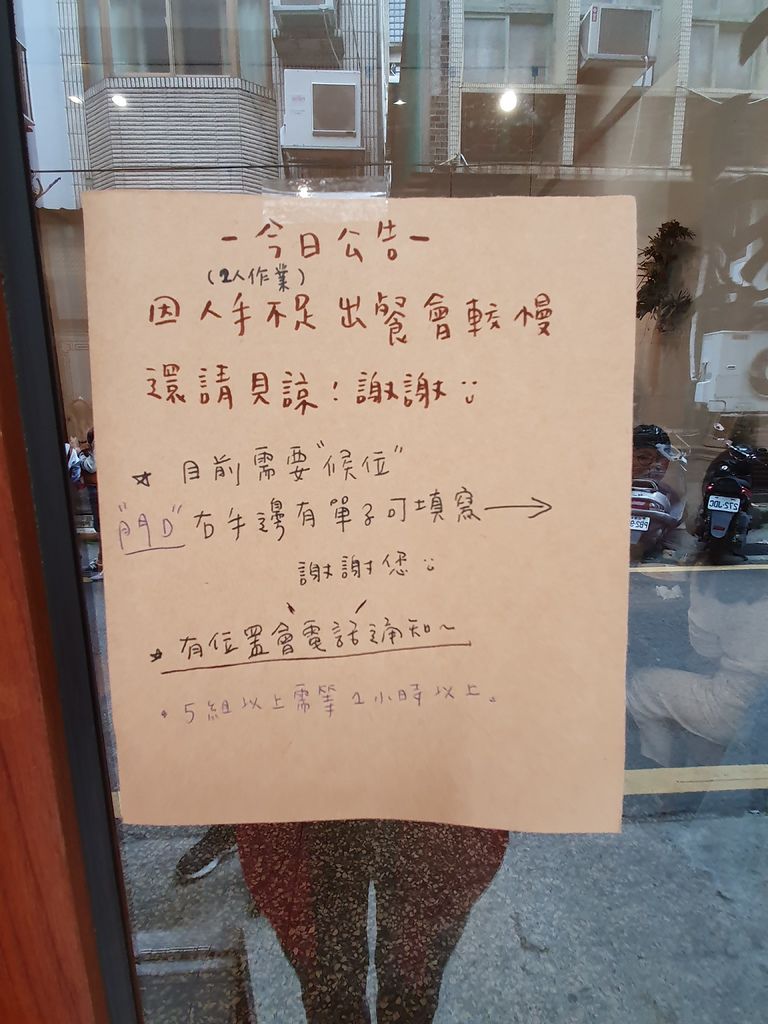 －今日公告－
(2人作業)
因人手不足出餐會較慢
還請見諒！謝謝：)
☆ 目前需要"候位"
"門口"右手邊有單子可填寫→
謝謝您：)
☆有位置會電話通知～
・5組以上需等1小時以上。